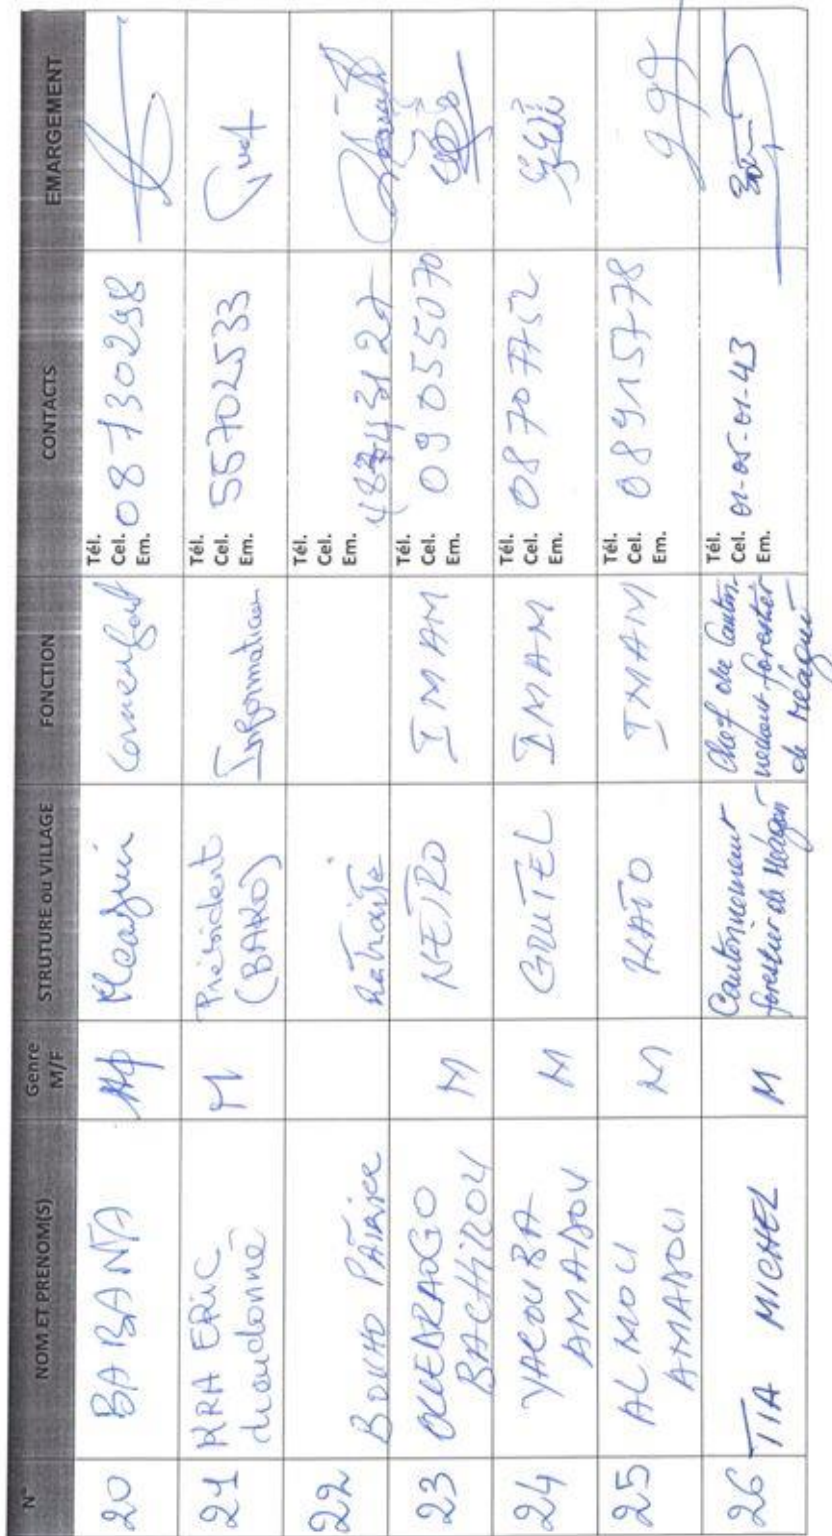 N°
NOM ET PRENOM(S)
Genre
M/F
STRUTURE ou VILLAGE
FONCTION
CONTACTS
EMARGEMENT
20
BABANA
Meagui
Tél.
Cel. 08730298
Em.
21
KRA ERIC
dieudonné
M
Président
(BAKO)
Informaticien
Tél.
Cel. 55702533
Em.
22
BOUHO PATRICE
Retraité
Tél.
Cel.
Em.
23
OUEDRAOGO
BACHIROU
M
NETRO
IMAM
09055070
24
YACOUBA
AMADOU
M
GNITEL
IMAM
Tél.
Cel. 08707752
Em.
25
ALMOU
AMADOU
M
KATO
IMAM
Tél.
Cel. 08915778
Em.
26
TIA MICHEL
M
Cantonnement
forestier de Méagui
Chef de Canton-
nement forestier
de Méagui
Tél.
Cel. 01-05-01-43
Em.